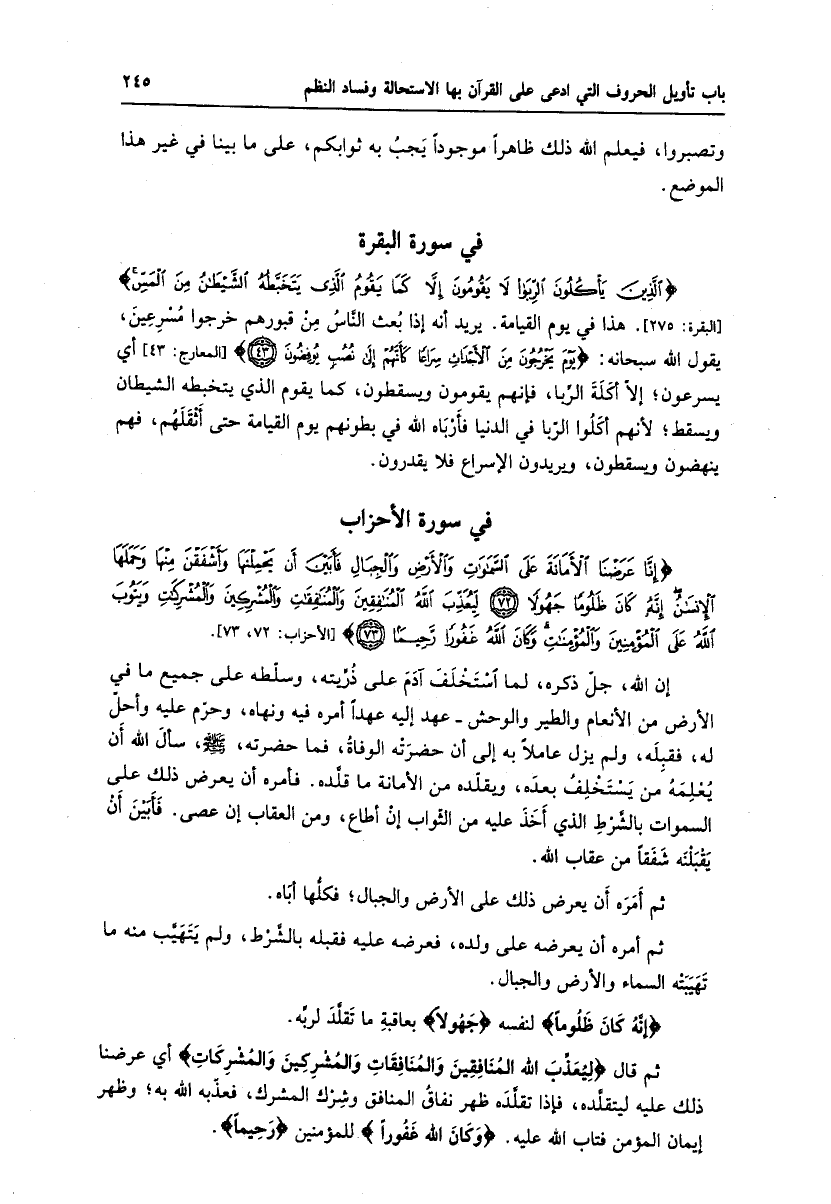 باب تأويل الحروف التي ادعى على القرآن بها الاستحالة وفساد النظم ٢٤٥
وتصبروا، فيعلم الله ذلك ظاهراً موجوداً يَجبُ به ثوابكم، على ما بينا في غير هذا
الموضع.
في سورة البقرة
﴿ٱلَّذِينَ يَأْكُلُونَ ٱلرِّبَوٰا۟ لَا يَقُومُونَ إِلَّا كَمَا يَقُومُ ٱلَّذِى يَتَخَبَّطُهُ ٱلشَّيْطَٰنُ مِنَ ٱلْمَسِّ ۚ﴾
[البقرة: ٢٧٥]. هذا في يوم القيامة. يريد أنه إذا بُعث النَّاسُ مِنْ قبورهم خرجوا مُسْرِعينَ،
يقول الله سبحانه: ﴿يَوْمَ يَخْرُجُونَ مِنَ ٱلْأَجْدَاثِ سِرَاعًا كَأَنَّهُمْ إِلَىٰ نُصُبٍ يُوفِضُونَ ﴿٤٣﴾﴾ [المعارج: ٤٣] أي
يسرعون؛ إلاّ أَكَلَةَ الرِّبا، فإنهم يقومون ويسقطون، كما يقوم الذي يتخبطه الشيطان
ويسقط؛ لأنهم أكَلُوا الرّبا في الدنيا فأَرْبَاه الله في بطونهم يوم القيامة حتى أَثْقَلَهُم، فهم
ينهضون ويسقطون، ويريدون الإسراع فلا يقدرون.
في سورة الأحزاب
﴿إِنَّا عَرَضْنَا ٱلْأَمَانَةَ عَلَى ٱلسَّمَٰوَٰتِ وَٱلْأَرْضِ وَٱلْجِبَالِ فَأَبَيْنَ أَن يَحْمِلْنَهَا وَأَشْفَقْنَ مِنْهَا وَحَمَلَهَا
ٱلْإِنسَٰنُ ۖ إِنَّهُۥ كَانَ ظَلُومًا جَهُولًا ﴿٧٢﴾ لِيُعَذِّبَ ٱللَّهُ ٱلْمُنَٰفِقِينَ وَٱلْمُنَٰفِقَٰتِ وَٱلْمُشْرِكِينَ وَٱلْمُشْرِكَٰتِ وَيَتُوبَ
ٱللَّهُ عَلَى ٱلْمُؤْمِنِينَ وَٱلْمُؤْمِنَٰتِ ۗ وَكَانَ ٱللَّهُ غَفُورًا رَّحِيمًا ﴿٧٣﴾﴾ [الأحزاب: ٧٢، ٧٣].
إن الله، جلّ ذكره، لما ٱسْتَخْلَفَ آدَمَ على ذُرِّيته، وسلّطه على جميع ما في
الأرض من الأنعام والطير والوحش ـ عهد إليه عهداً أمره فيه ونهاه، وحرّم عليه وأحلّ
له، فقبِلَه، ولم يزل عاملاً به إلى أن حضرَتْه الوفاةُ، فما حضرته، ﷺ، سألَ الله أن
يُعْلِمَهُ من يَسْتَخْلِفُ بعدَه، ويقلّده من الأمانة ما قلَّده. فأمره أن يعرض ذلك على
السموات بالشَّرْطِ الذي أَخَذَ عليه من الثّواب إنْ أطاع، ومن العقاب إن عصى. فَأَبَيْنَ أَنْ
يَقْبَلْنَه شَفَقاً من عقاب الله.
ثم أَمَرَه أَن يعرض ذلك على الأرض والجبال؛ فكلُّها أبَاه.
ثم أمره أن يعرضه على ولده، فعرضه عليه فقبله بالشَّرْط، ولم يَتَهَيَّب منه ما
تَهَيَبَتْه السماء والأرض والجبال.
﴿إِنَّهُ كَانَ ظَلُوماً﴾ لنفسه ﴿جَهُولاً﴾ بعاقبةِ ما تَقلَّدَ لربِّه.
ثم قال ﴿لِيُعَذِّبَ الله المُنَافِقِينَ وَالمُنَافِقَاتِ وَالمُشْرِكِينَ وَالمُشْرِكَاتِ﴾ أي عرضنا
ذلك عليه ليتقلَّده، فإذا تقلَّده ظهر نفاقُ المنافق وشِرْك المشرك، فعذّبه الله به؛ وظهر
إيمان المؤمن فتاب الله عليه. ﴿وَكَانَ الله غَفُوراً﴾ للمؤمنين ﴿رَحِيماً﴾.